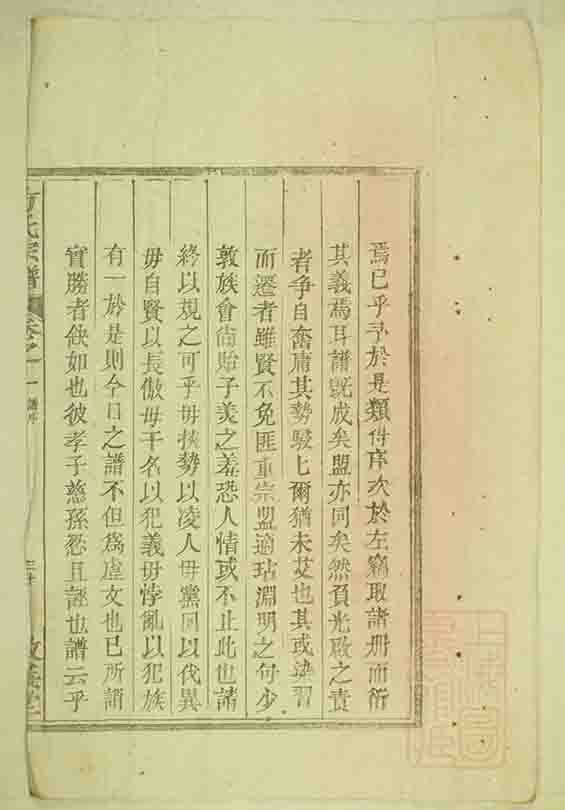 焉已乎予於是類件序次於左竊取諸冊而衍
其義焉耳譜旣成矣盟亦同矣然負光啟之責
者爭自奮庸其勢駸七爾猶未艾也其或染習
而遷者雖賢不免匪重崇盟適玷淵明之句少
敦族會尙貽子美之羞恐人情或不止此也請
終以規之可乎毋挾勢以凌人毋黨同以伐異
毋自賢以長傲毋干名以犯義毋悖亂以犯族
有一於是則今日之譜不但爲虛文也已所謂
實勝者缺如也彼孝子慈孫愁且誣也譜云乎
氏宗譜 卷之一 譜序